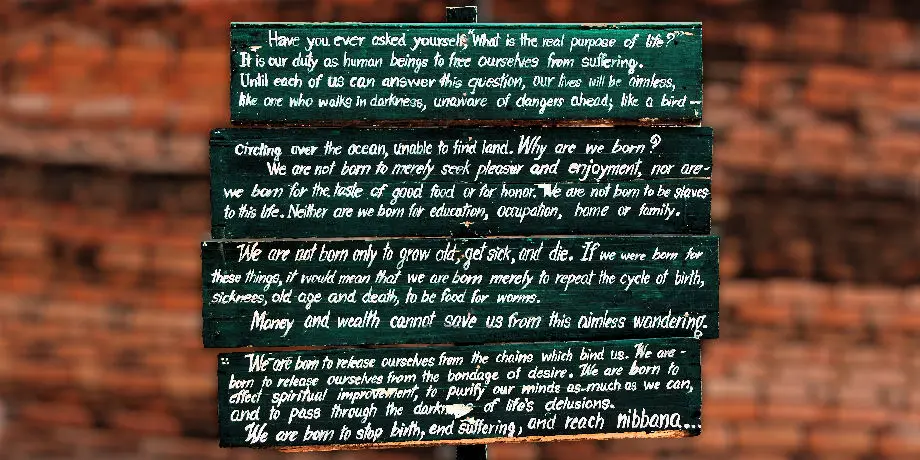 Have you ever asked yourself, "What is the real purpose of life?"
It is our duty as human beings to free ourselves from suffering.
Until each of us can answer this question, our lives will be aimless,
like one who walks in darkness, unaware of dangers ahead; like a bird –
circling over the ocean, unable to find land. Why are we born?
We are not born to merely seek pleasur and enjoyment, nor are-
we born for the taste of good food or for honor. We are not born to be slaves
to this life. Neither are we born for education, occupation, home or family.
We are not born only to grow old, get sick, and die. If we were born for
these things, it would mean that we are born merely to repeat the cycle of birth,
sickness, old age and death, to be food for worms.
Money and wealth cannot save us from this aimless wandering.
"We are born to release ourselves from the chains which bind us. We are -
born to release ourselves from the bondage of desire. We are born to
effect spiritual improvement, to purify our minds as much as we can,
and to pass through the darkness of life's delusions.
We are born to stop birth, end suffering, and reach nibbana...